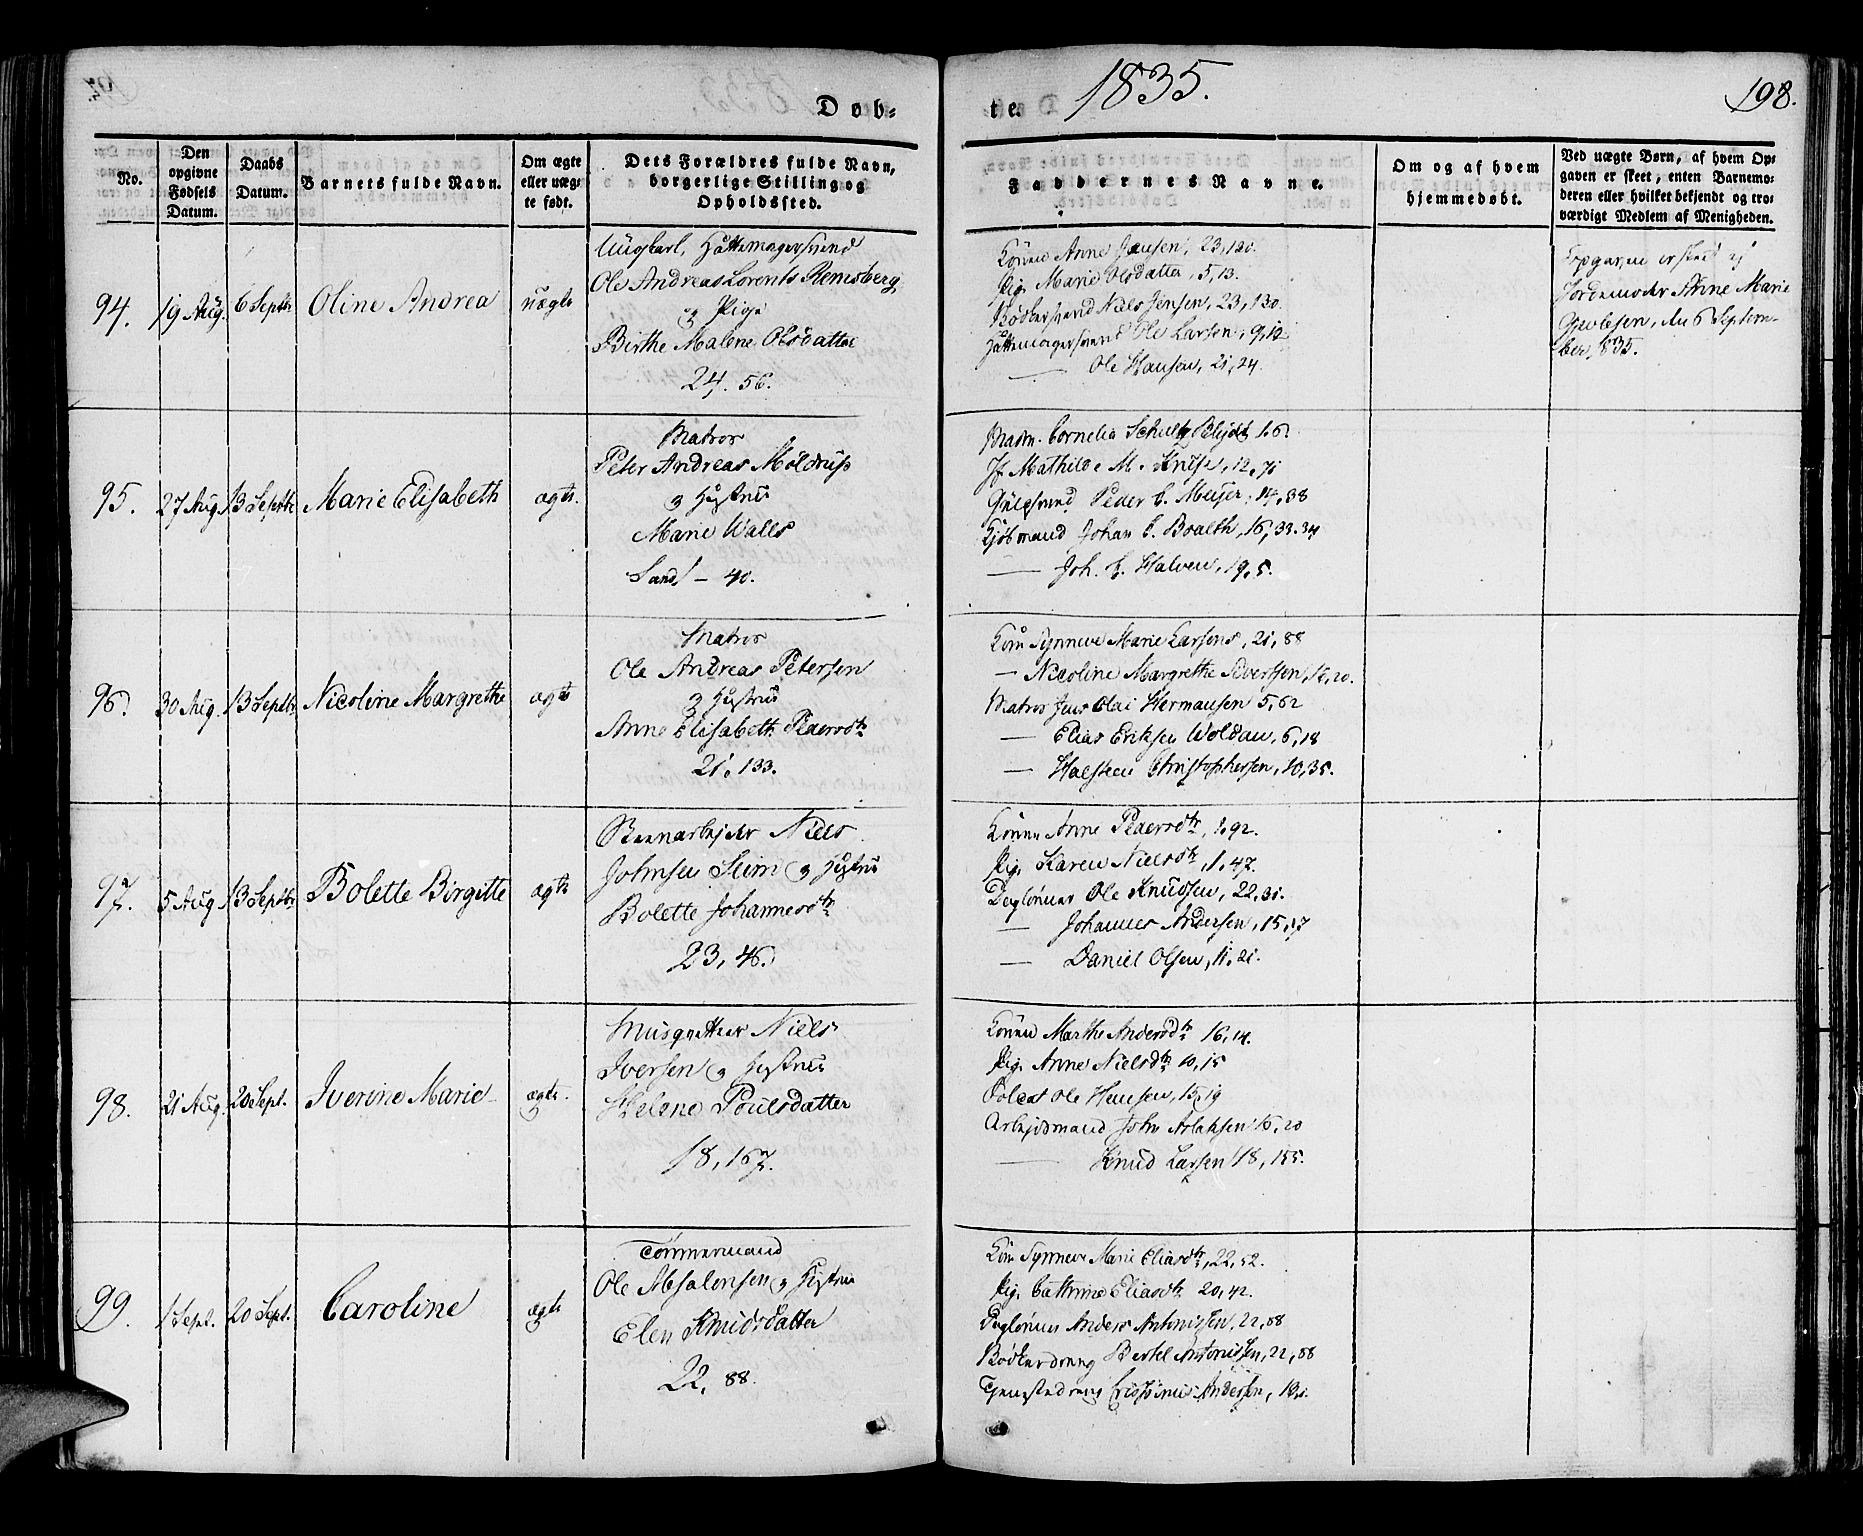 Døb-
te.
1835.
198.
No.
Den opgivne Fødsels Datum.
Daabs Datum.
Barnets fulde Navn.
Om ægte eller uægte født.
Dets Forældres fulde Navn, borgerlige Stilling og Opholdssted.
Faddernes Navne.
Om og af hvem hjemmedøbt.
Ved uægte Børn, af hvem Opgaven er skeet, enten Barnemoderen eller hvilket bekjendt og troværdigt Medlem af Menigheden.
94.
19 Aug.
6 Septbr
Oline Andrea
uægte
Ungkarl, Hattemagersvend
Ole Andreas Lorents Remsberg
og Pige
Birthe Malene Olsdatter
24. 56.
Konen Anne Hansen, 23, 120.
Pig. Marie Olsdatter, 5, 13.
Bødkersvend Niels Jensen, 23, 130.
Hattemagersvend Ole Larsen, 9, 12
— Ole Hansen, 21, 24.
Opgaven er skeed af
Jordemoder Anne Marie
den 6 Septem-
ber 1835.
95.
27 Aug.
13 Septbr
Marie Elisabeth
ægte.
Matros
Peter Andreas Møldrup
og Hustrue
Marie Walls
Sand – 40.
Madm. Cornelia Schultz
Jf Mathilde M. 12, 71
Peder C. Meyer, 14, 38
Kjøbmand Johan C. Boalth, 16, 33.34
— Joh. 19, 5.
96.
30 Aug.
13 Septbr.
Nicoline Margrethe
ægte
Matros
Ole Andreas Petersen
og Hustrue
Anne Elisabeth Pedersdtr
21, 133.
Kone Synneve Marie Larsens, 21, 88
— Nicoline Margrethe Sivertsen, 16, 20.
Matros Jens Olai Hermansen 5, 62
— Elias Eriksen Woldan, 6, 18
— Halsten Christophersen, 10, 35.
97.
5 Aug
13 Septbr
Bolette Birgitte
ægte
Steenarbejder Niels
Johnsen Sleim og Hustrue
Bolette Johannesdtr
23, 46.
Konen Anne Pedersdtr, 1, 92.
Pig. Karen Nielsdtr, 1, 47.
Daglønner Ole Knudsen, 22, 31.
— Johannes Andersen, 15, 17
— Daniel Olsen, 11, 21.
98.
21 Aug.
20 Sept.
Iverine Marie
ægte.
Musqueteer Niels
Iversen og Hustrue
Helene Poulsdatter
18, 167.
Konen Marthe Andersdtr 16, 14.
Pig. Anne Nielsdtr 10, 15
Soldat Ole Hansen, 15, 19
Arbejdsmand John Aslaksen 16, 20
— Knud Larsen 18, 155.
99.
1 Sept.
20 Sept.
Caroline
ægte
Tømmermand
Ole Absalonsen og Hustrue
Elen Knudsdatter
22, 88.
Kone Synneve Marie Eliasdtr, 22, 52.
Pig. Cathrine Eliasdtr 20, 42.
Daglønner Anders Antonissen, 22, 88
Bødkerdreng Bertel Antonissen, 22, 88
Tjenestedreng Andersen,